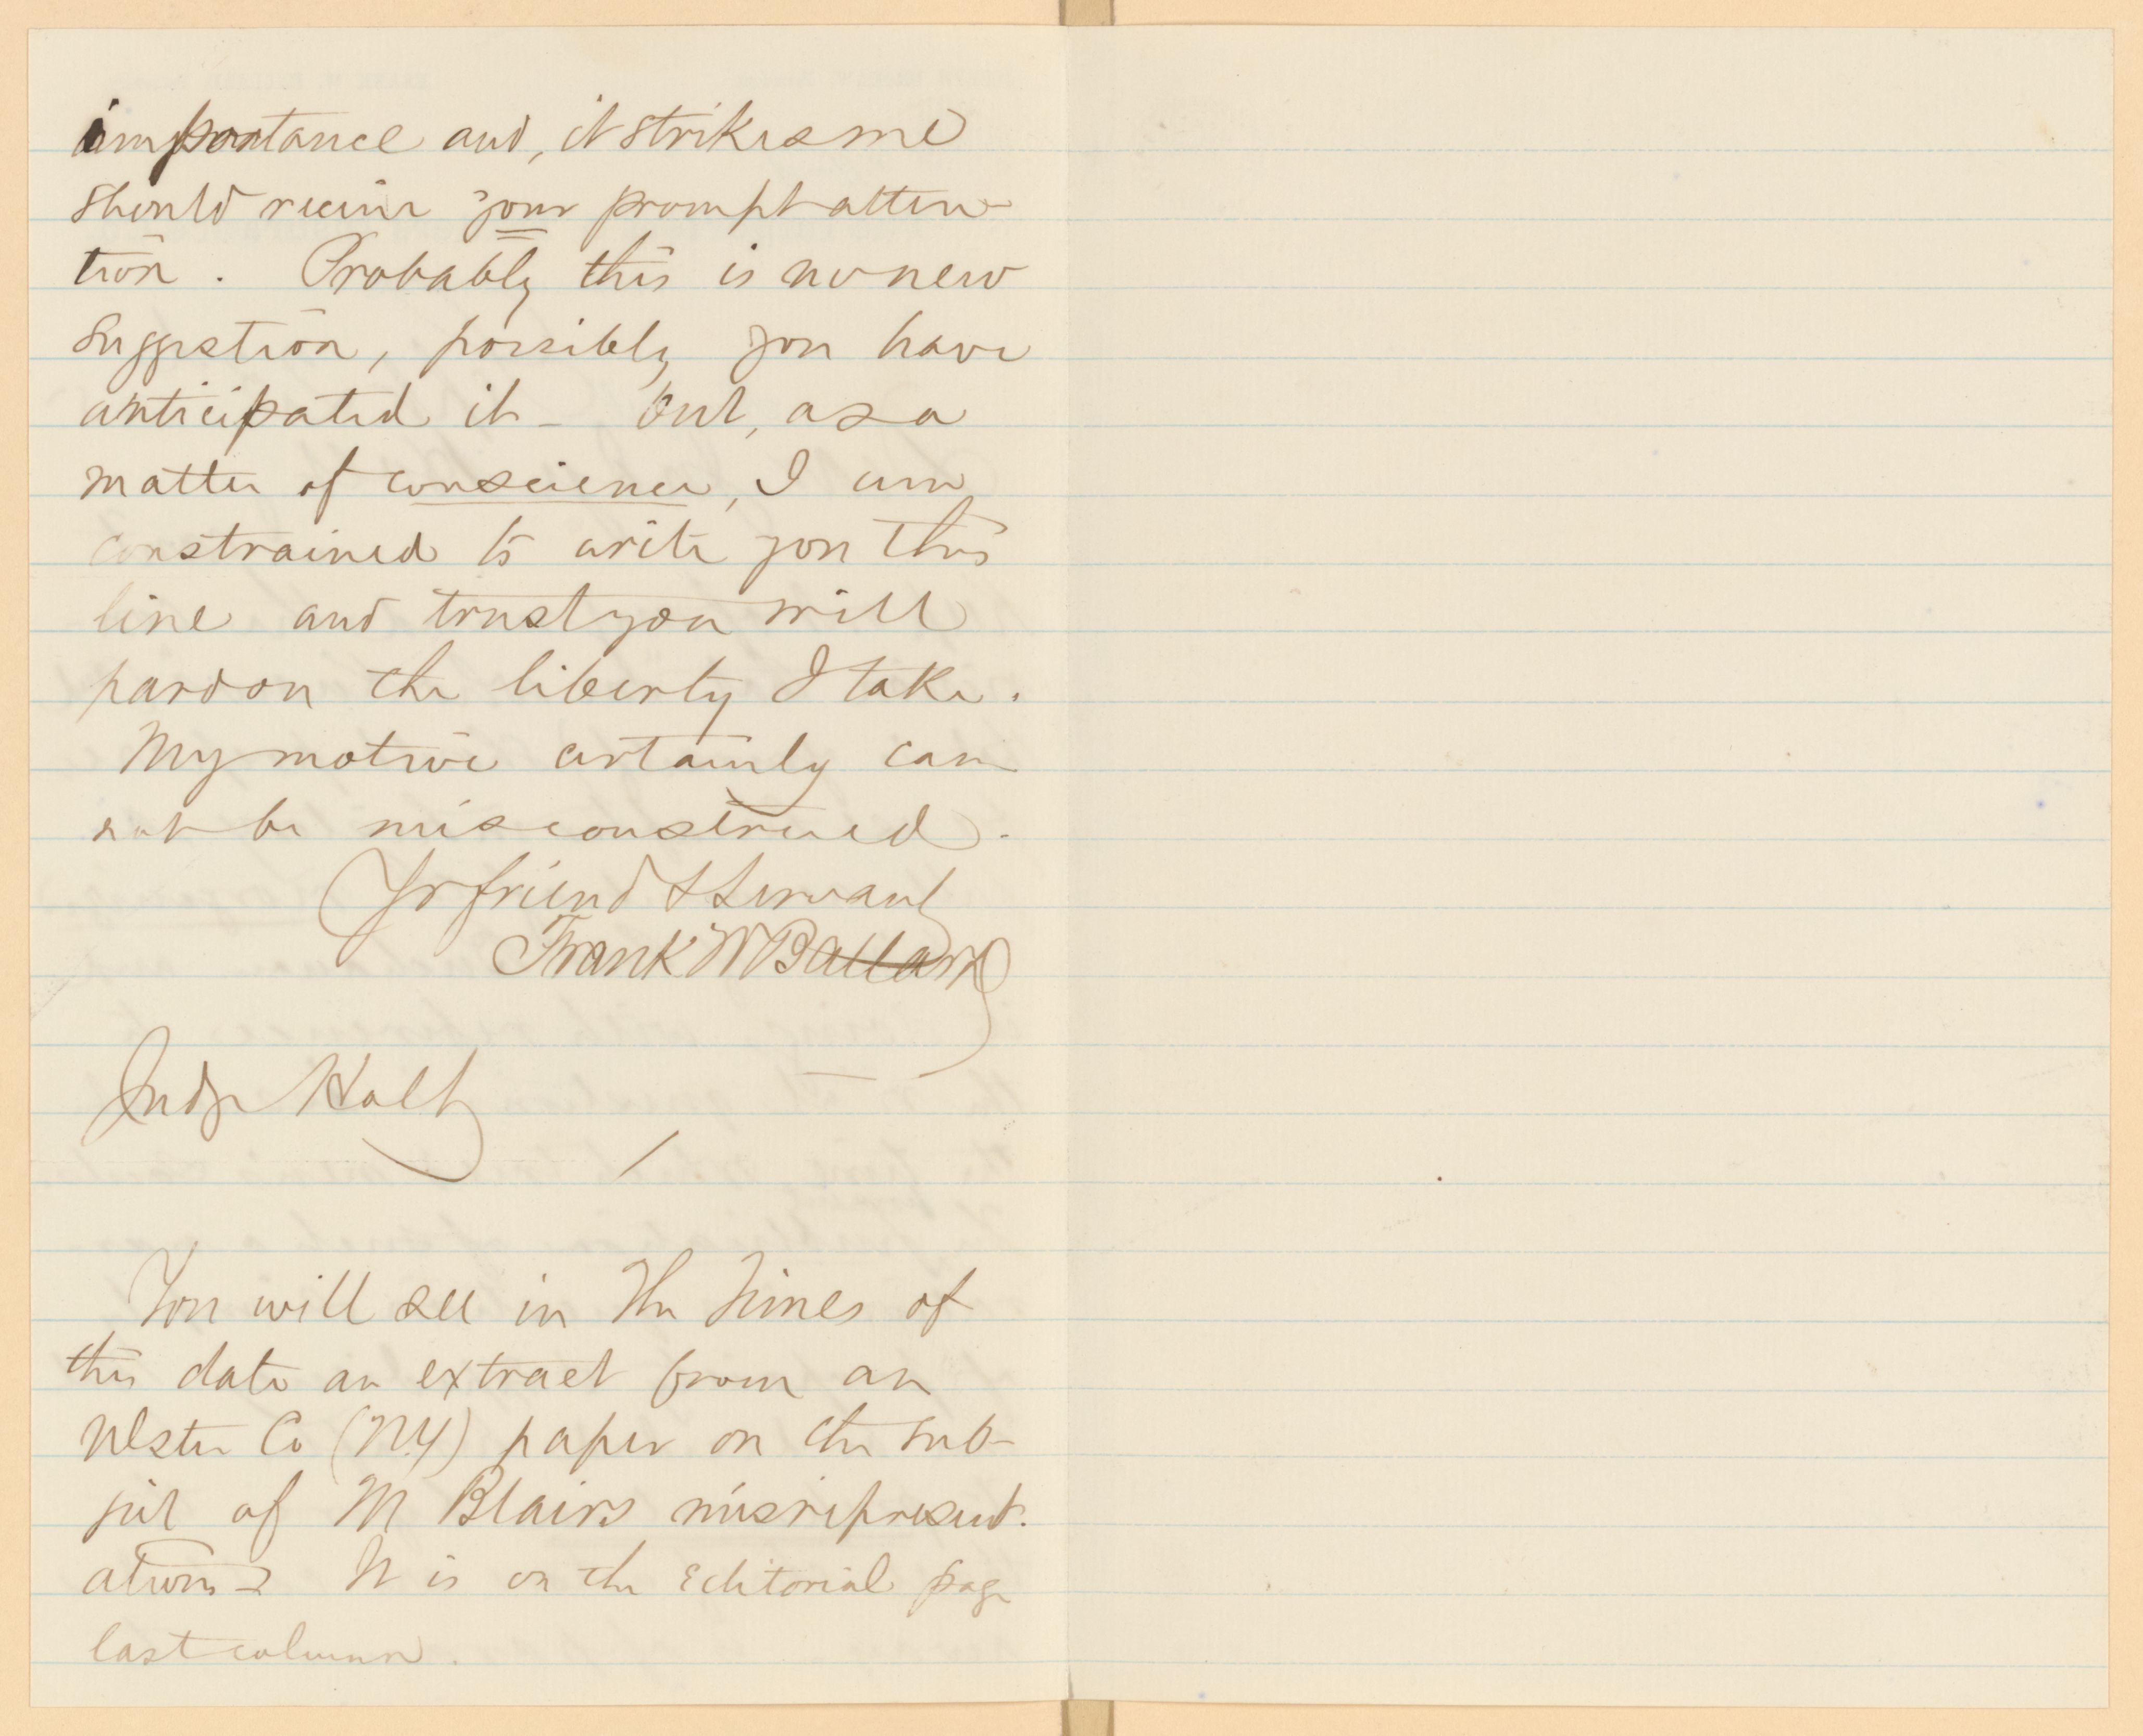 importance and, it strikes me
should receive your prompt atten-
tion. Probably this is no new
suggestion, possibly you have
anticipated it - but, as a
matter of conscience, I am
constrained to write you this
line and trust you will
pardon the liberty I take.
My motive certainly can
not be misconstrued.
Yr friend & Servant
Frank W Ballard
Judge Holt
You will see in The Times of
this date an extract from an
Ulster Co (N.Y) paper on the sub-
ject of M Blairs misrepresent-
ations - It is on the Editorial page
last column.